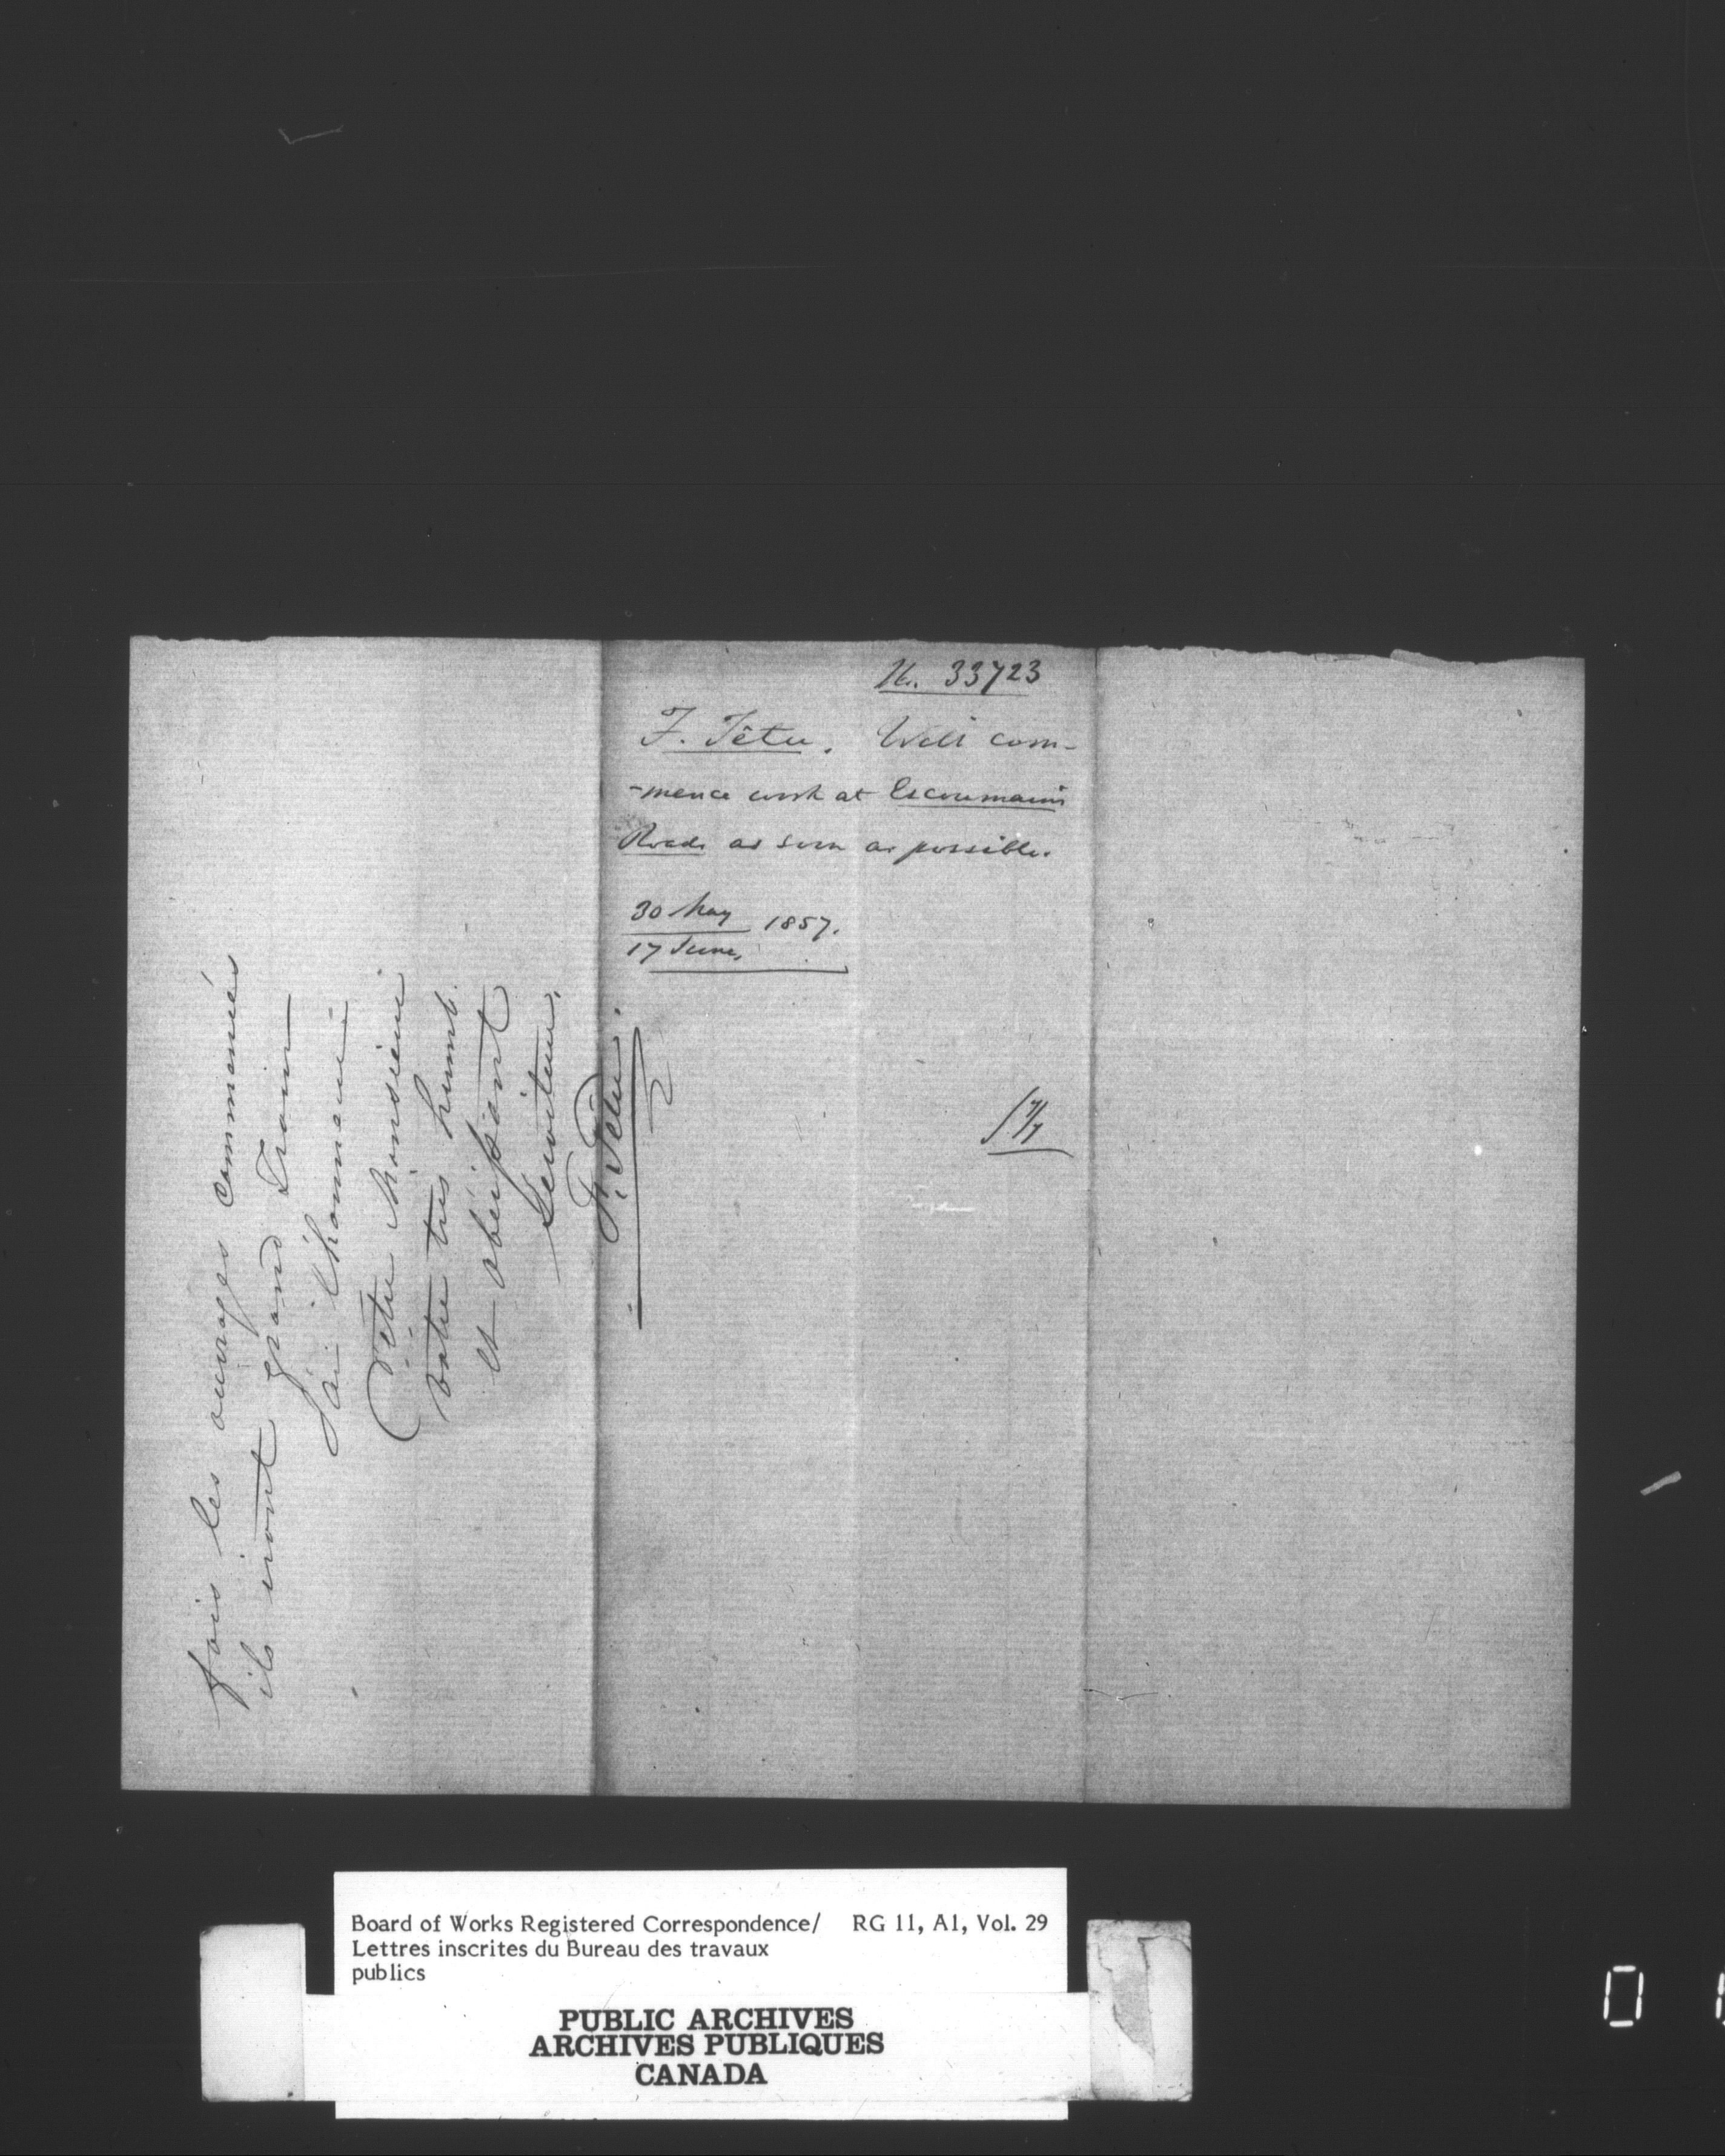 fois les ouvrages commencés
ils iront grand Train
J'ai l'honneur
d'être Monsieur
votre très humb.
et obéissant
Serviteur,
F. Têtu.
No. 33723
F. Têtu. Will com-
-mence work at Escoumains
Roads as soon as possible.
30 May 1857.
17 June,
Board of Works Registered Correspondence/ RG 11, A1, Vol. 29
Lettres inscrites du Bureau des travaux
publics
PUBLIC ARCHIVES
ARCHIVES PUBLIQUES
CANADA
0